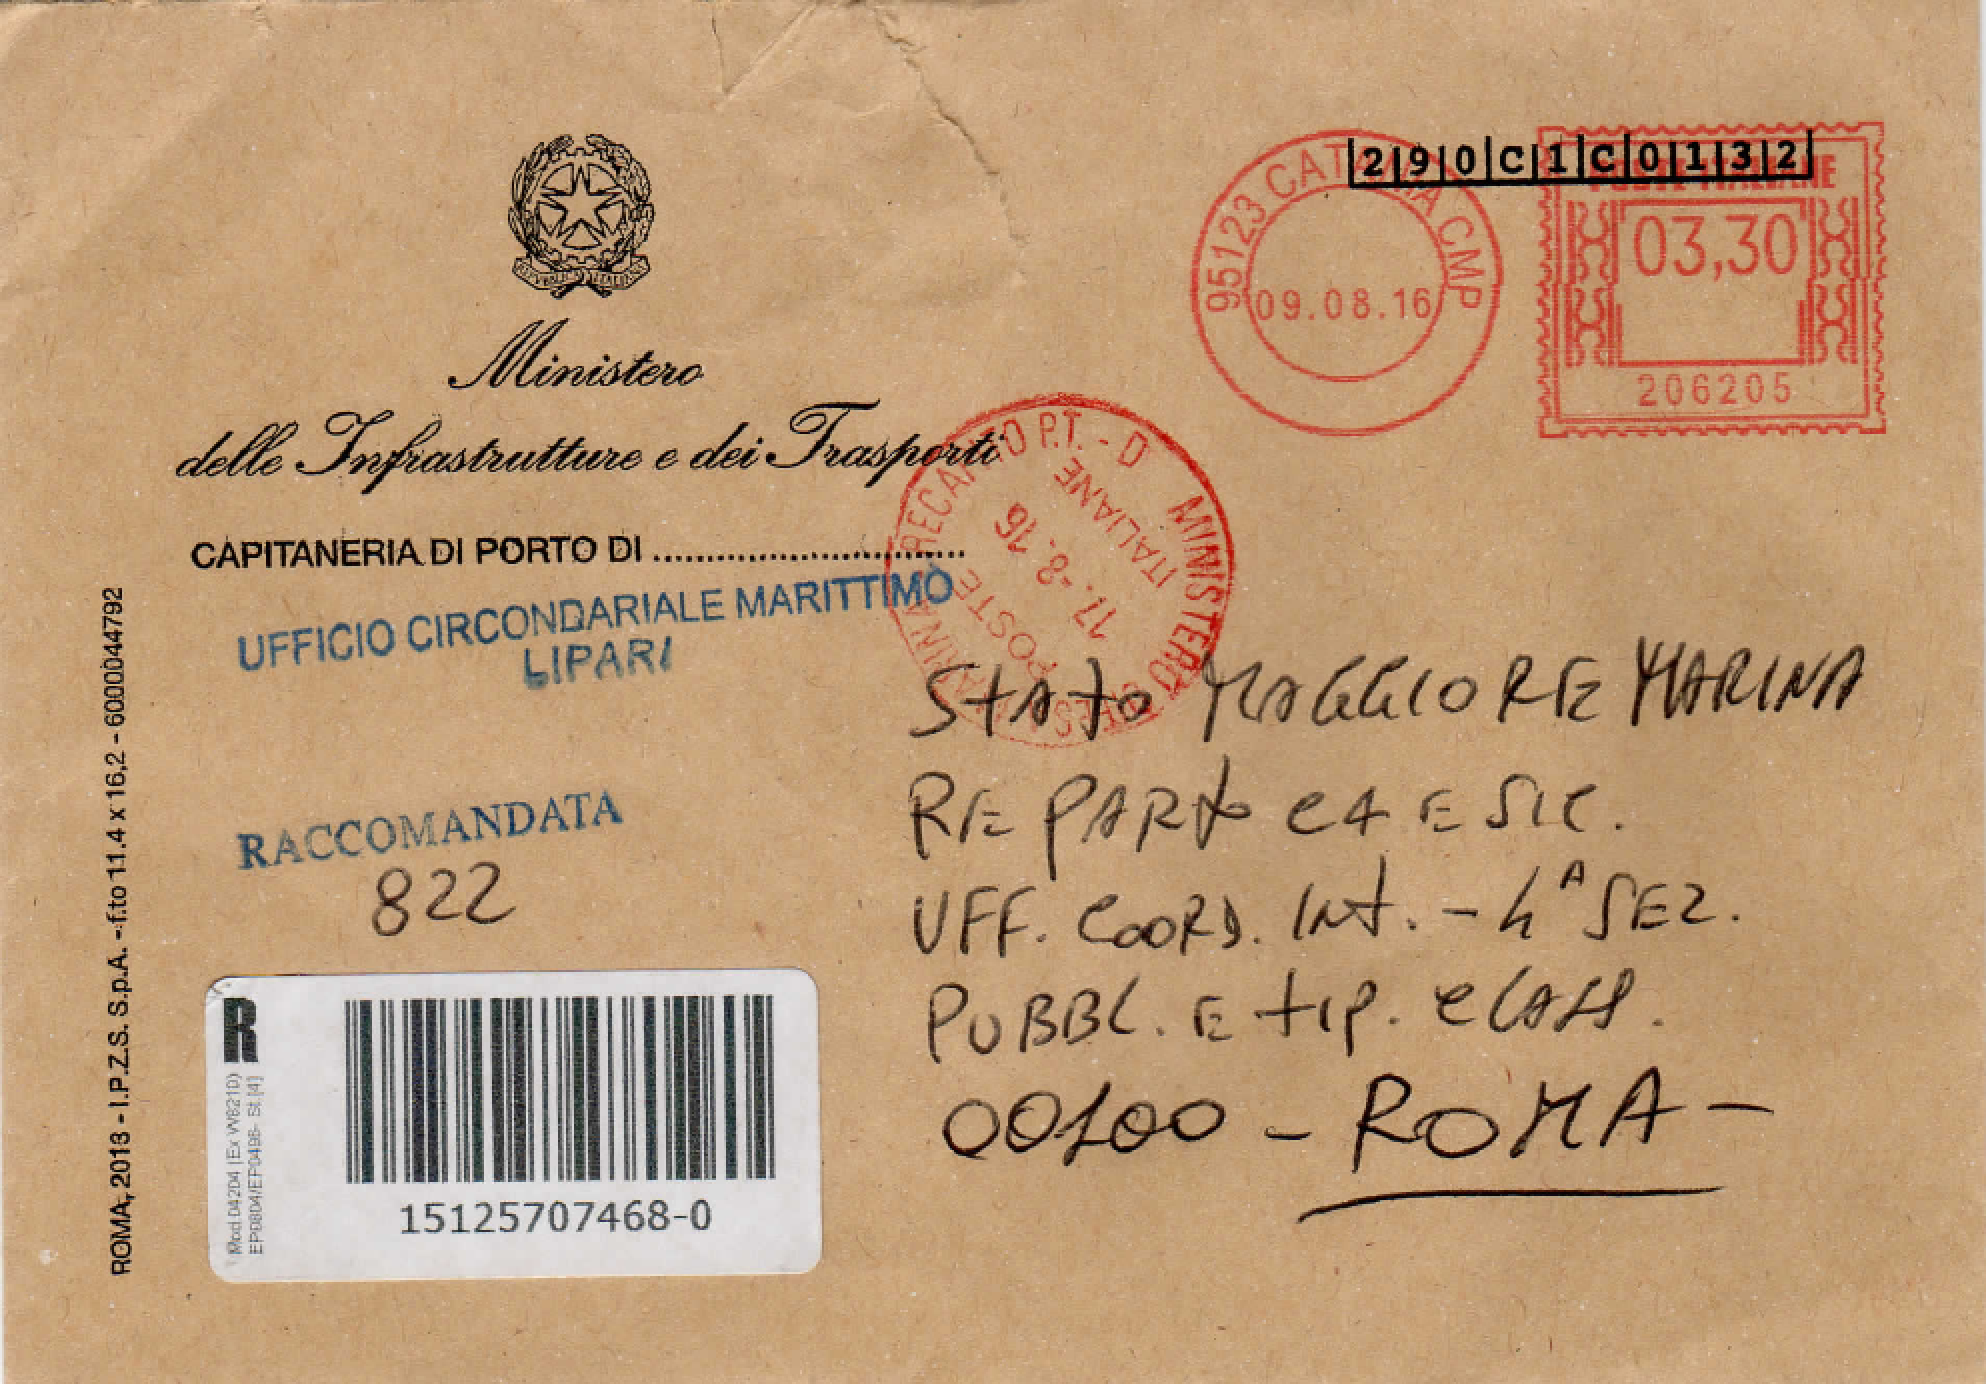 REPUBBLICA ITALIANA
Ministero
delle Infrastrutture e dei Trasporti
CAPITANERIA DI PORTO DI ..............................
UFFICIO CIRCONDARIALE MARITTIMO
LIPARI
RACCOMANDATA
822
R
Mod.04204 (Ex W8210)
EP0804/EP0496- St.[4]
15125707468-0
ROMA, 2013 - I.P.Z.S. S.p.A. - f.to 11.4 x 16,2 - 6000044792
290C1C0132
95123 CATANIA CMP
09.08.16
POSTE ITALIANE
03,30
206205
RECAPITO P.T. - D
MINISTERO DIFESA MARINA
POSTE ITALIANE
17.-8.16
STATO MAGGIORE MARINA
REPARTO C4 E SIC.
UFF. COORD. INT. - 4ª SEZ.
PUBBL. E TIP. CLASS.
00100 - ROMA -